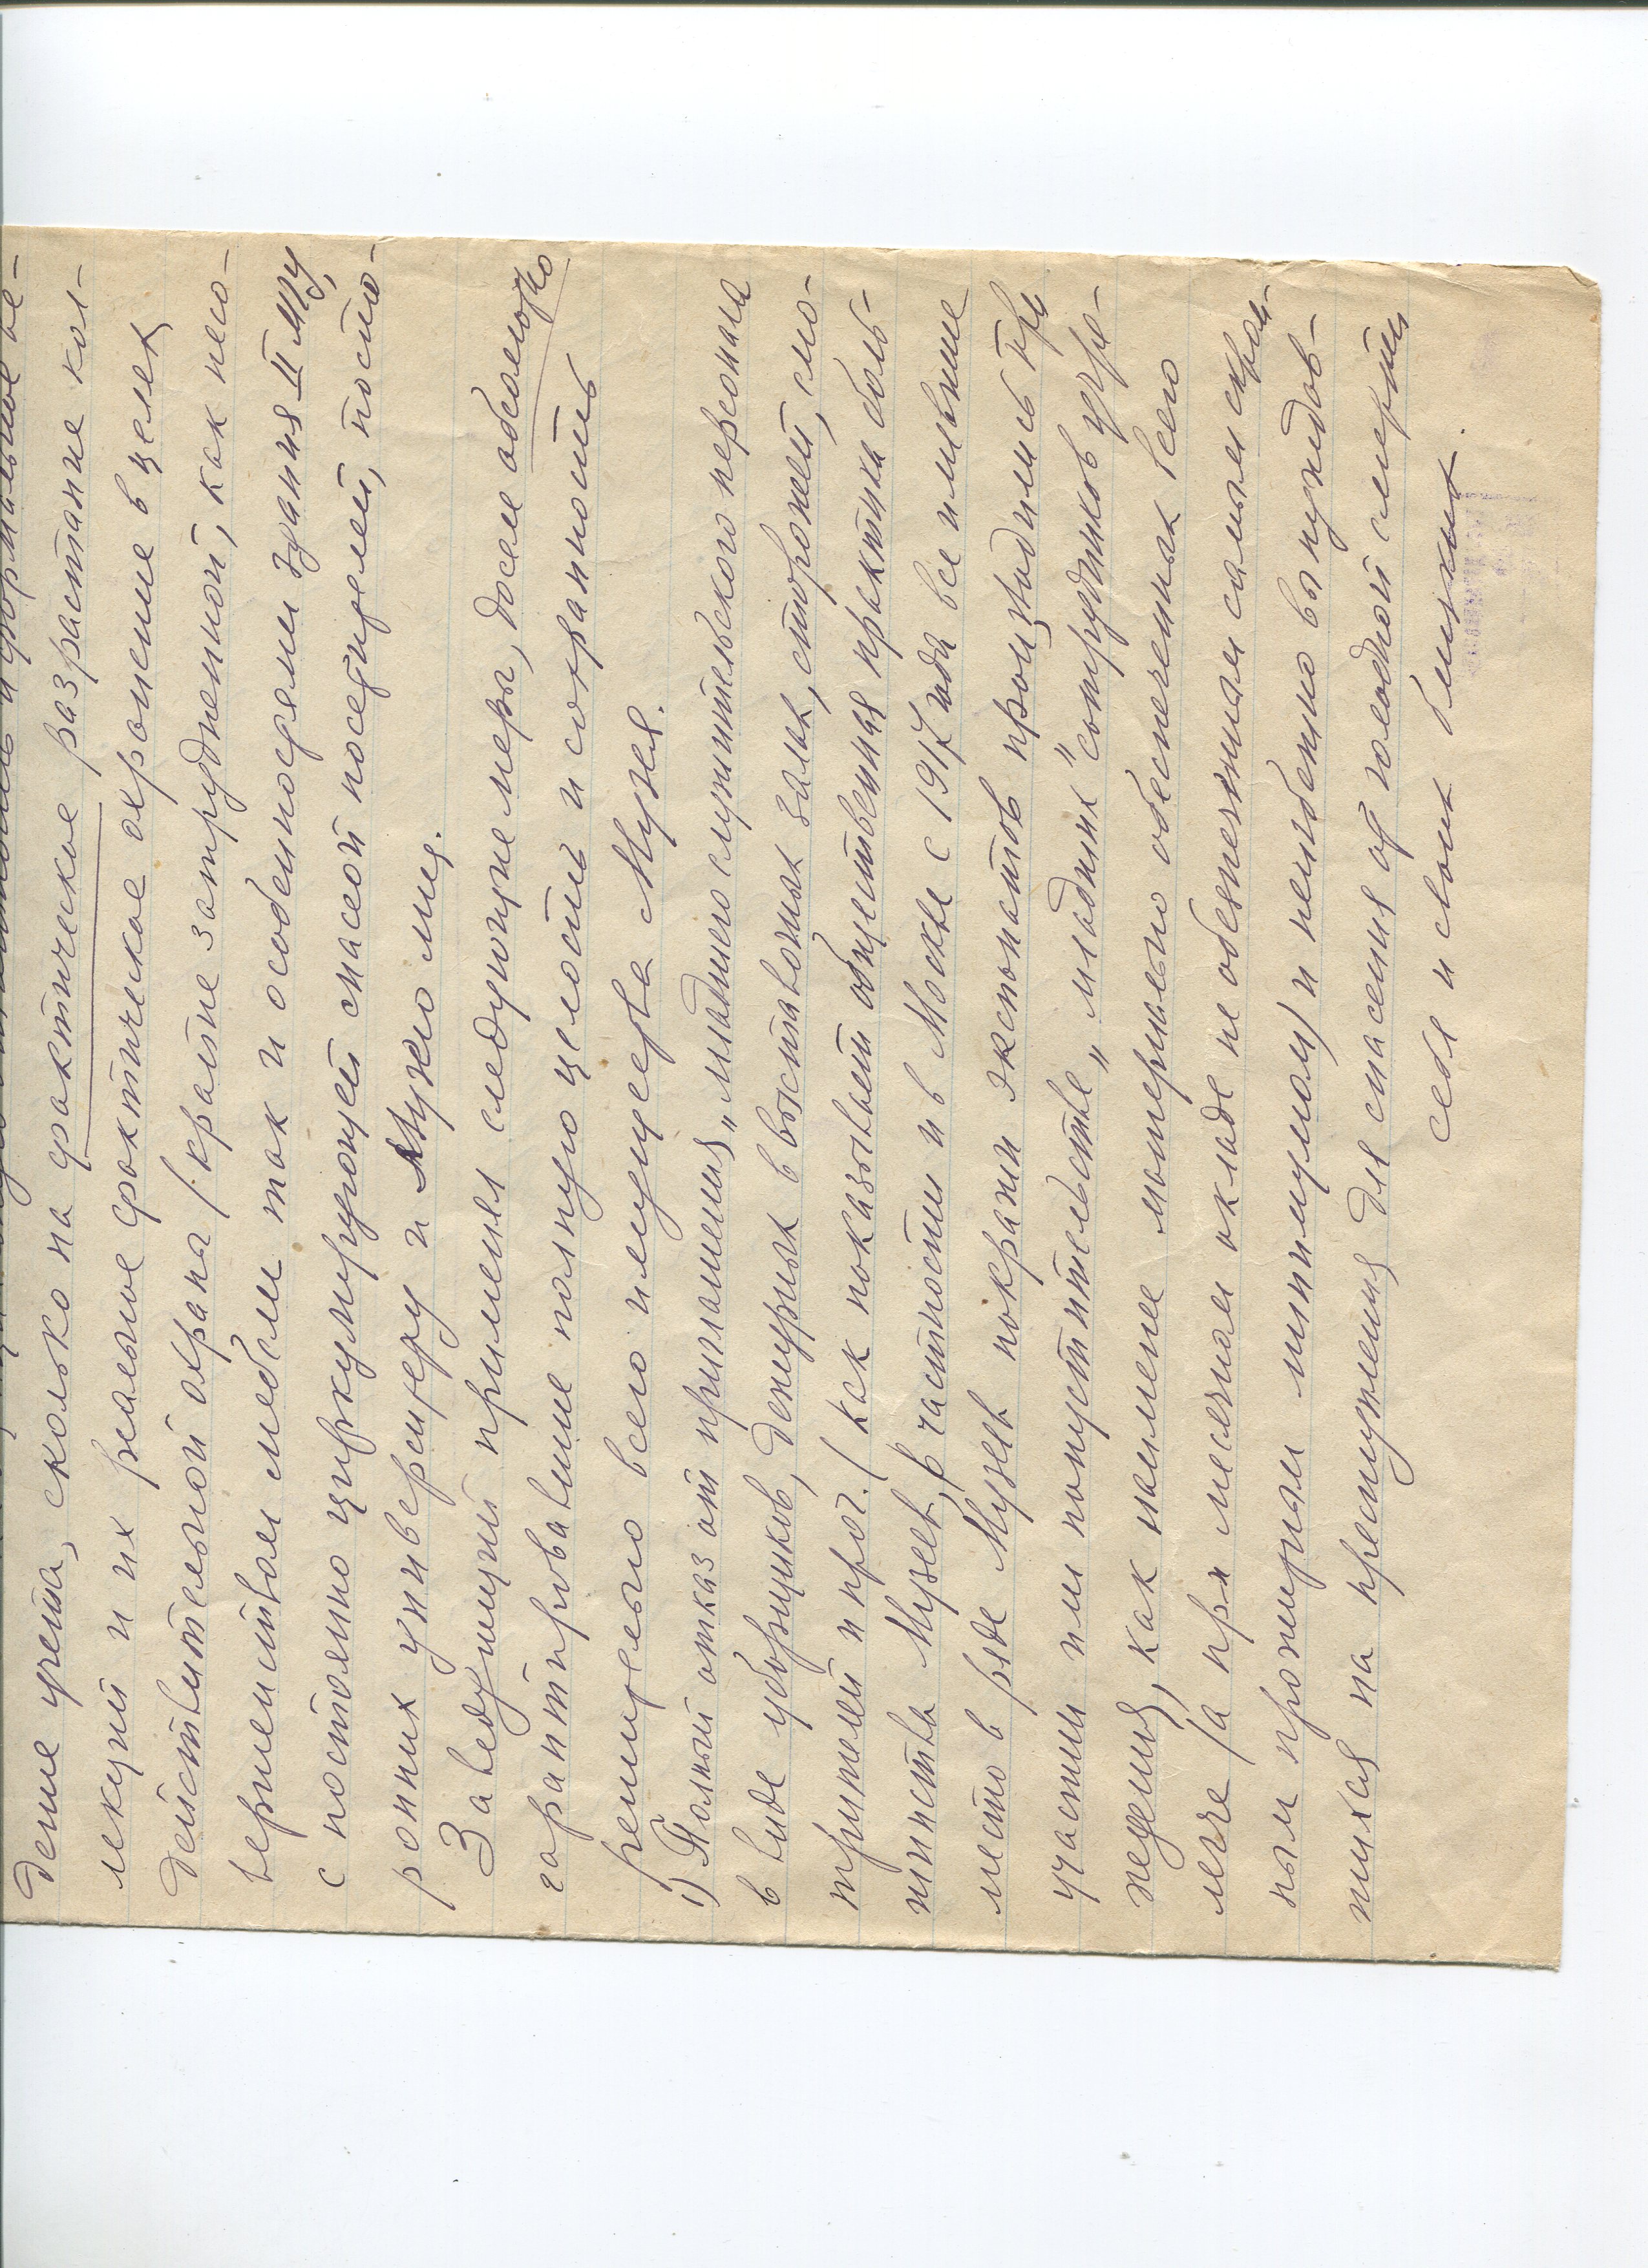 дение учета, сколько на фактическое разрастание кол-
лекций и их реальное фактическое охранение в целях
действительной охраны (крайне затрудненной, как несо-
вершенством мебели так и особенностями здания II МГУ,
с постоянно циркулирующей массой посетителей, посто-
ронних университету и Музею лиц.
Заведующий применял следующие меры, доселе абсолютно
гарантировавшие полную целость и сохранность
решительно всего имущества Музея.
1) Полный отказ от приглашения „младшего служительского персонала
в виде уборщиков, дежурных в выставочных залах, сторожей, смо-
трителей и проч. (как показывает общественная практика боль-
шинства Музеев, в частности и в Москве с 1917 года все имевшие
место в ряде Музеев покражи экспонатов производились при
участии или попустительстве „младших" сотрудников учре-
ждения, как наименее материально обеспеченных всего
легче (а при месячном окладе не обеспеченным самым скром-
ным прожиточным минимумом) и неизбежно вынуждов-
шихся на преступления для спасения от голодной смерти
себя и своих близких.